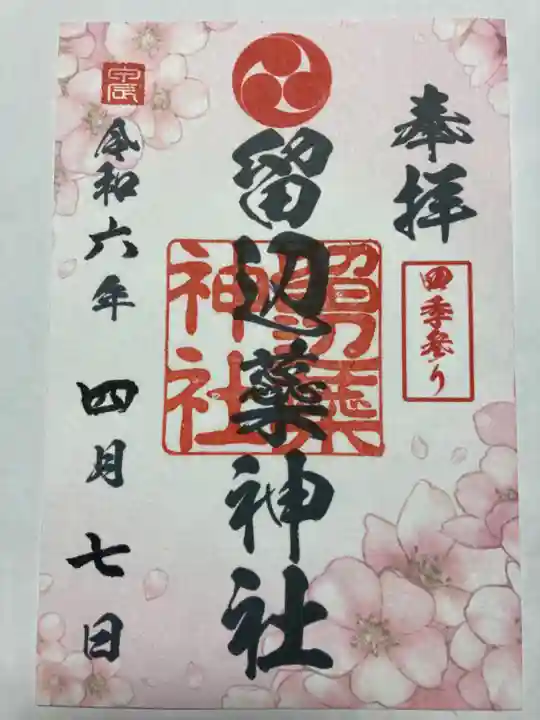 奉拝
四季参り
留辺蘂神社
留辺蘂神社
甲辰
令和六年 四月 七日